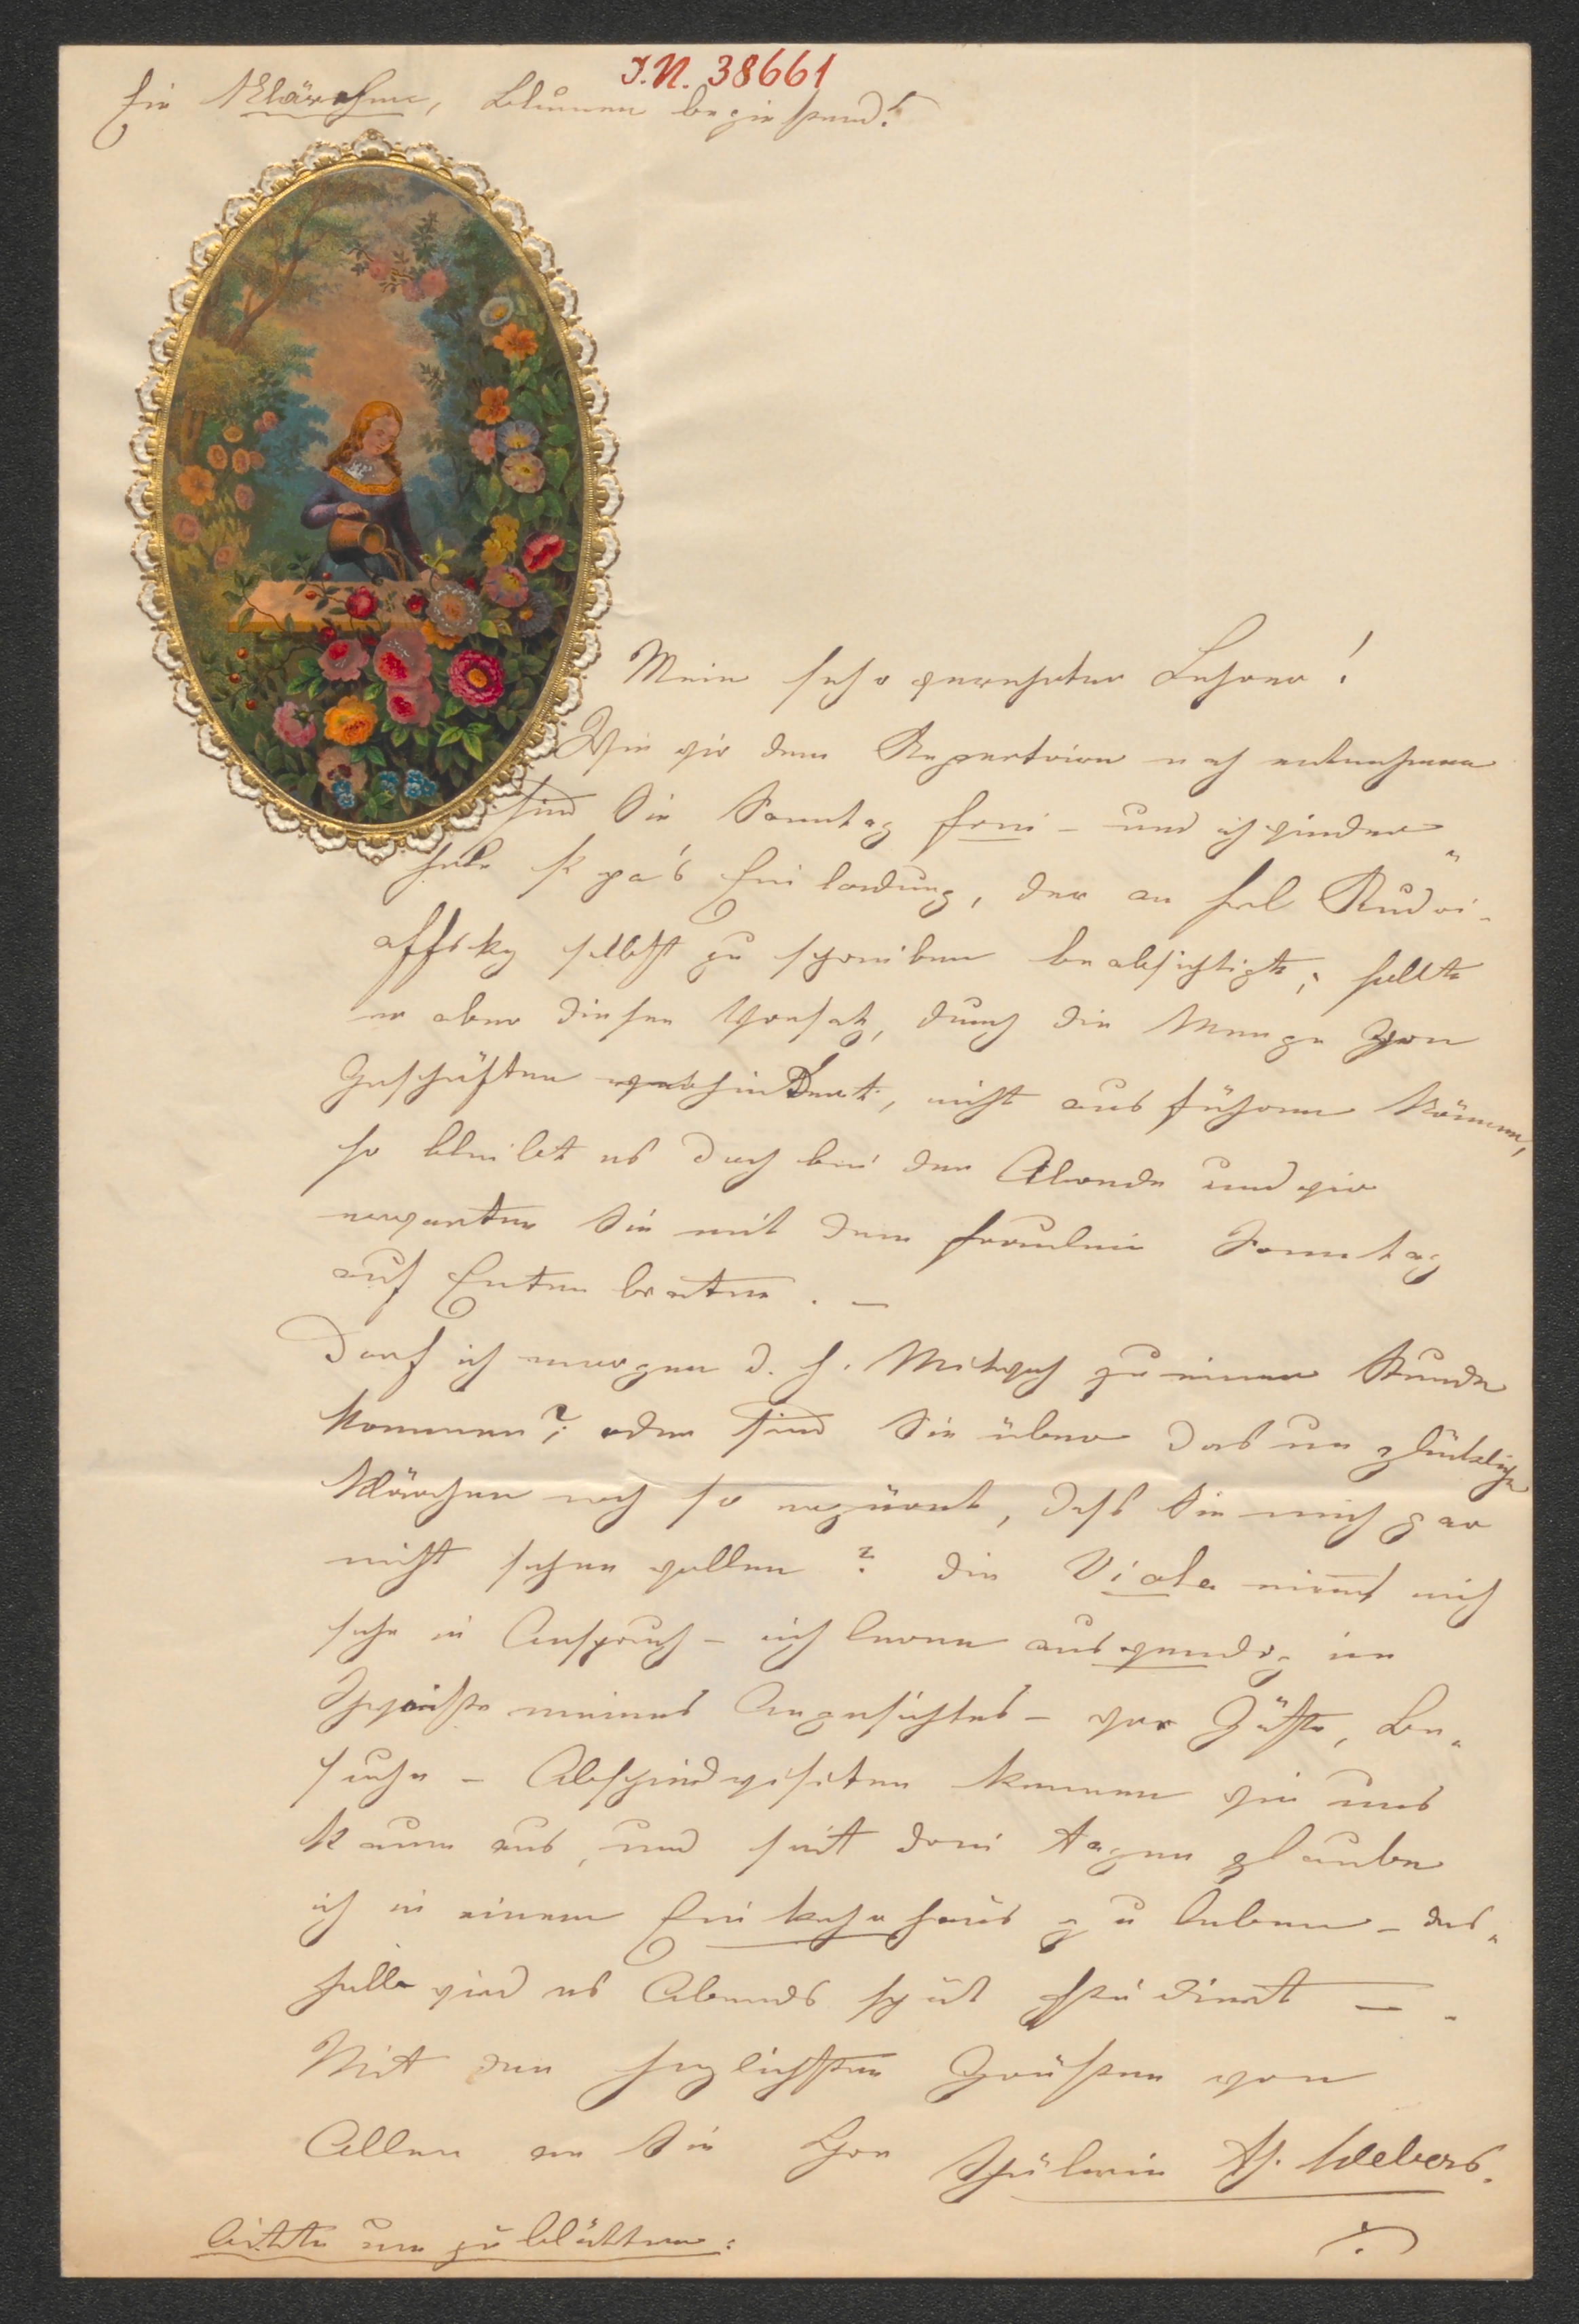 I.N. 38661
Ein Klärchen, Blumen begießend!
Mein sehr verehrter Lehrer!
Wie wir dem Repertoire nach entnehmen
sind Sie Sonntag frei – und ich
habe Papa's Einladung, der an Frl Rudri-
affsky selbst zu schreiben beabsichtigte; sollte
er aber diesen Vorsatz, durch die Menge von
Geschäften verhindert, nicht ausführen können,
so bleibt es doch bei dem Abende und wir
erwarten Sie mit dem Fräulein Sonntag
auf Entenbraten. –
Darf ich morgen d. h. Mittwoch zu einer Stunde
kommen?; oder sind Sie über das unglückliche
Klärchen noch so erzürnt, daß Sie mich gar
nicht sehen wollen? Die Viola nimmt mich
sehr in Anspruch – ich lerne auswendig im
Schweiße meines Angesichtes – vor Gäste, Be-
suche – Abschiedvisiten kennen wir uns
kaum aus, und seit drei Tagen glaube
ich in einem Einkehrhaus zu leben – des-
halb wird es Abends spät studiert –
Mit den herzlichsten Grüßen von
Allen an Sie Ihre Schülerin Th. Webers.
bitte um zu blättern: